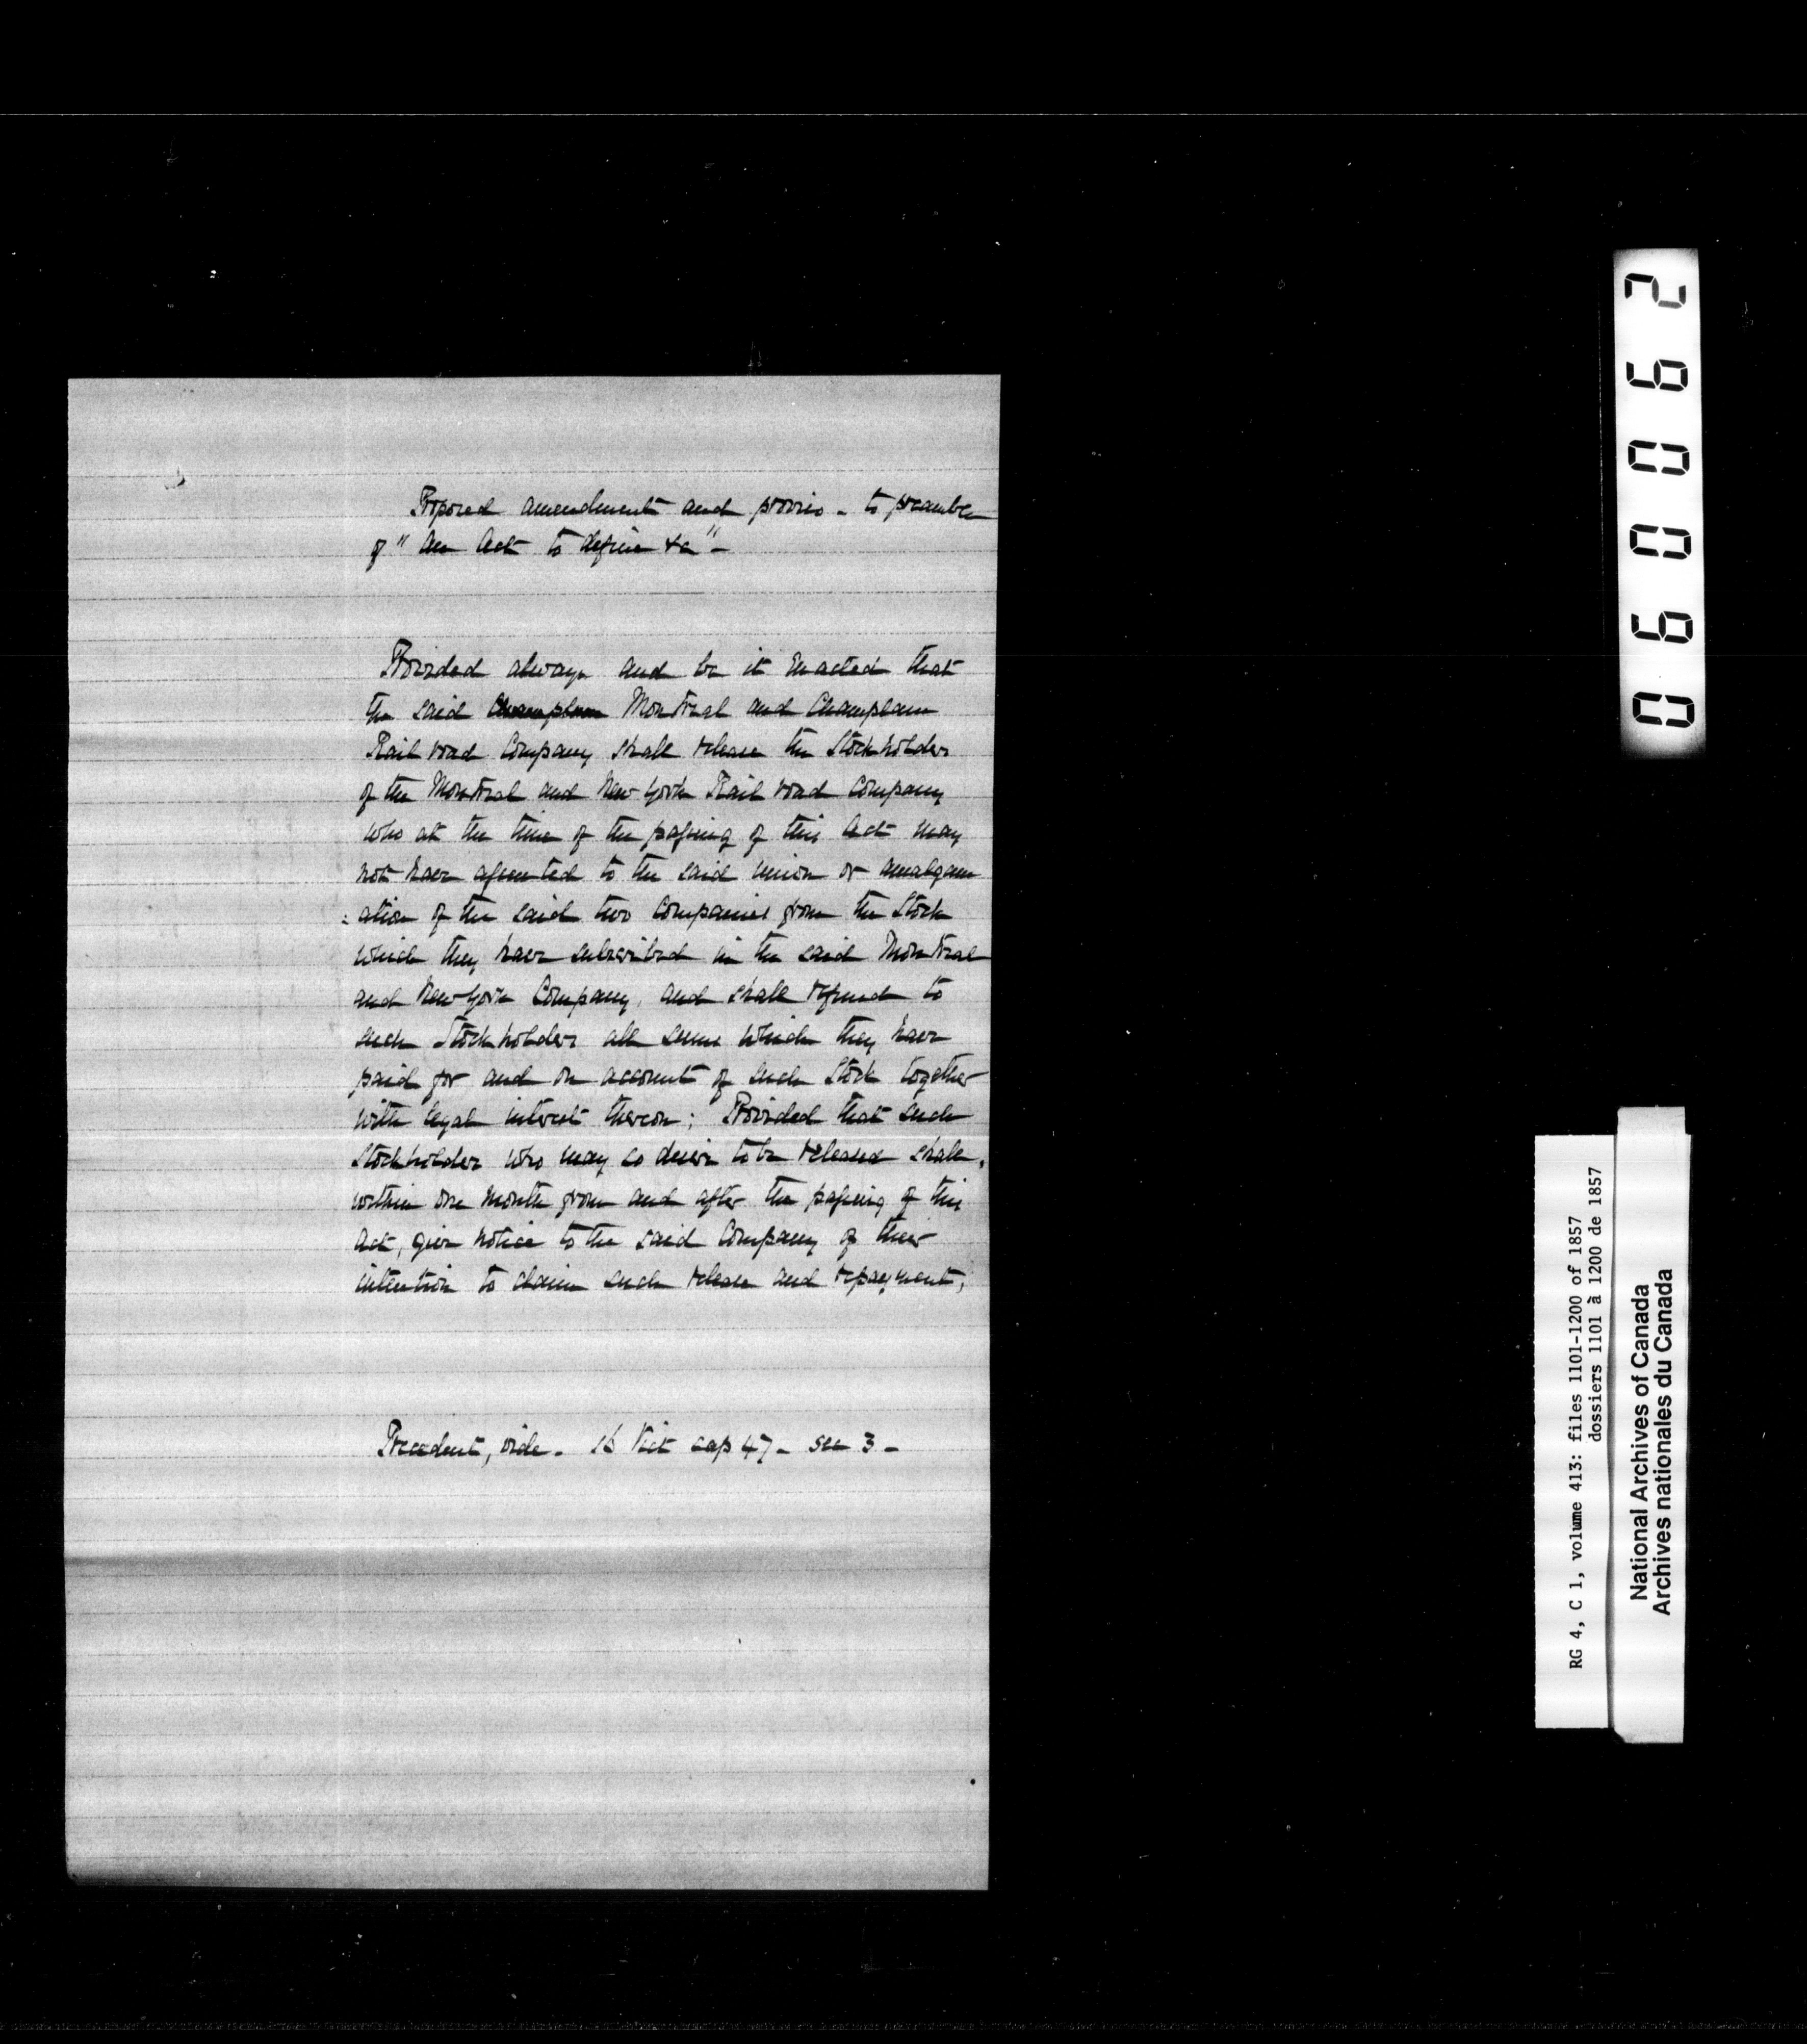 Proposed amendment and proviso - to preamble
of "An Act to define &c" -
Provided always and be it Enacted that
the said Champlain Montreal and Champlain
Rail road Company shall release the Stockholders
of the Montreal and New York Rail road Company
who at the time of the passing of this Act may
not have assented to the said union or amalgam
: ation of the said two Companies from the Stock
which they have subscribed in the said Montreal
and New York Company, and shall refund to
such Stockholders all sums which they have
paid for and on account of such Stock together
with legal interest thereon; Provided that such
Stockholders who may so desire to be released shall,
within one month from and after the passing of this
Act, give notice to the said Company of their
intention to claim such release and repayment;
Precedent, vide - 16 Vict cap 47 - sec 3 -
060062
RG 4, C 1, volume 413: files 1101-1200 of 1857
dossiers 1101 à 1200 de 1857
National Archives of Canada
Archives nationales du Canada